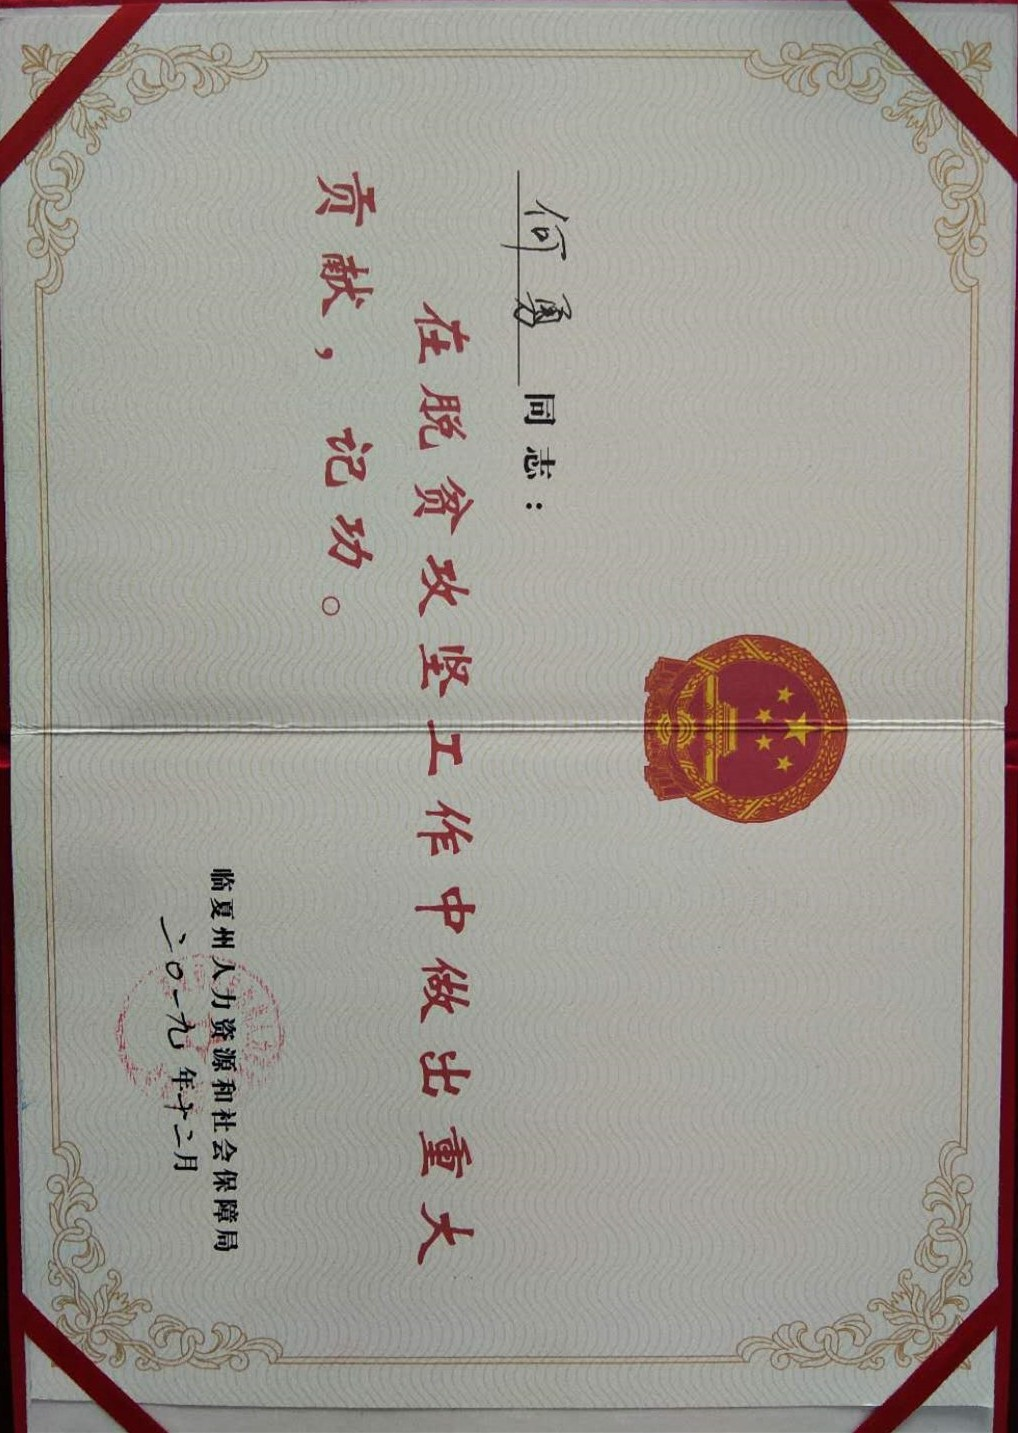 何勇同志：
在脱贫攻坚工作中做出重大
贡献，记功。
临夏州人力资源和社会保障局
二〇一九年十二月